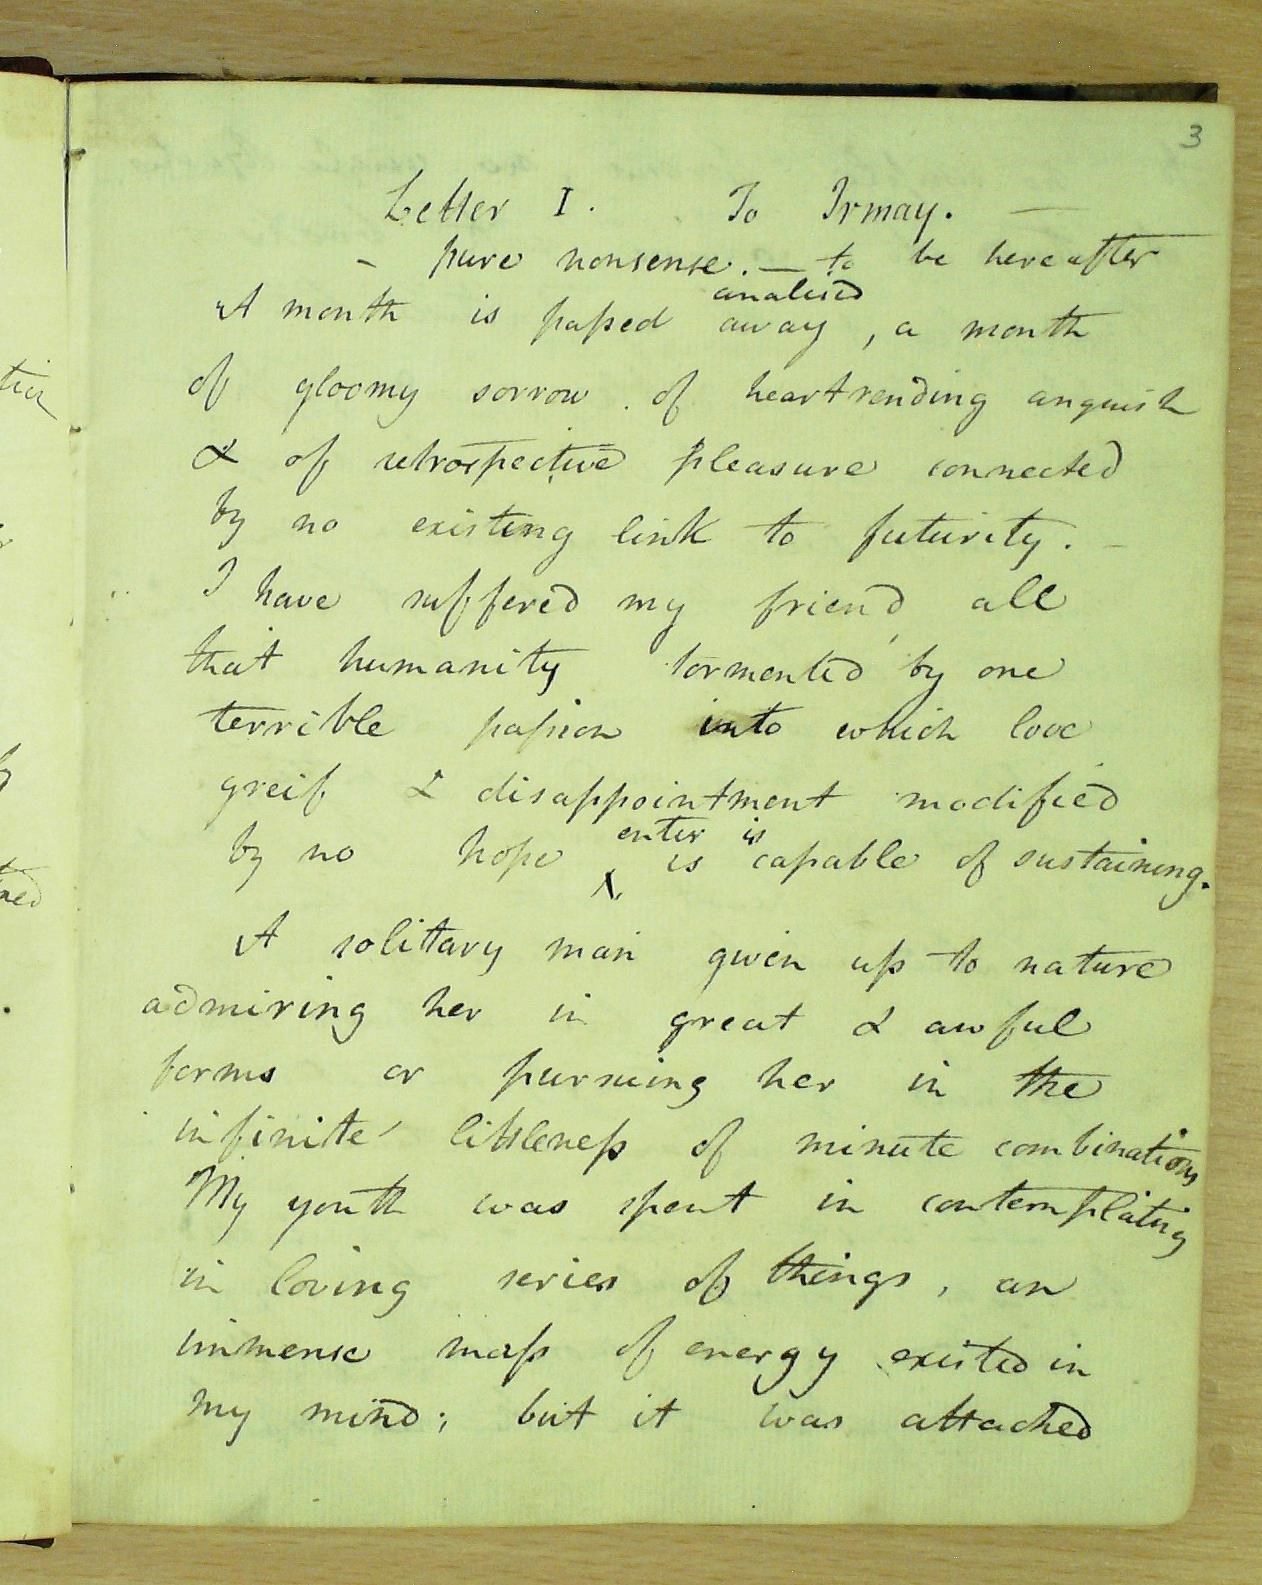 3
Letter I. To Irmay. —
- pure nonsense. — to be hereafter
analised
A month is paſsed away, a month
of gloomy sorrow. of heartrending anguish
& of retrospective pleasure connected
by no existing link to futurity. -
I have suffered my friend, all
that humanity tormented by one
terrible paſsion into which love
greif & disappointment modified
enter is
by no hope ^ is capable of sustaining.
A solitary man given up to nature
admiring her in great & awful
forms or pursuing her in the
infinite littleneſs of minute combinations
My youth was spent in contemplating
in loving series of things, an
immense maſs of energy existed in
my mind; but it was attached